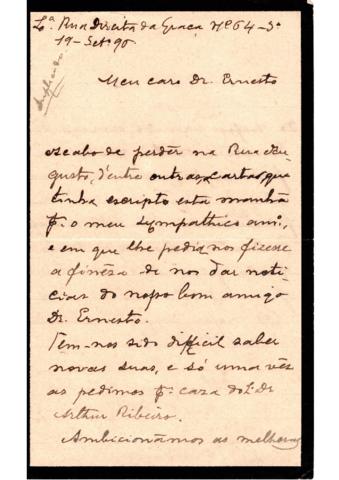 Lx.ª Rua Direita da Graça Nº 64-3º
19-Set.º 90
Meu caro Dr. Ernesto
Acabo de perder na Rua Au-
gusta, d'entre outras, cartas que
tinha escripto esta manhã
pª o meu sympathico am.º,
e em que lhe pedia nos fizesse
a finêza de nos dar noti-
cias do nosso bom amigo
Dr. Ernesto.
Tem-nos sido difficil saber
novas suas, e só uma vês
as pedimos pª caza do Sr. Dr.
Arthur Ribeiro.
Ambicionâmos as melhoras